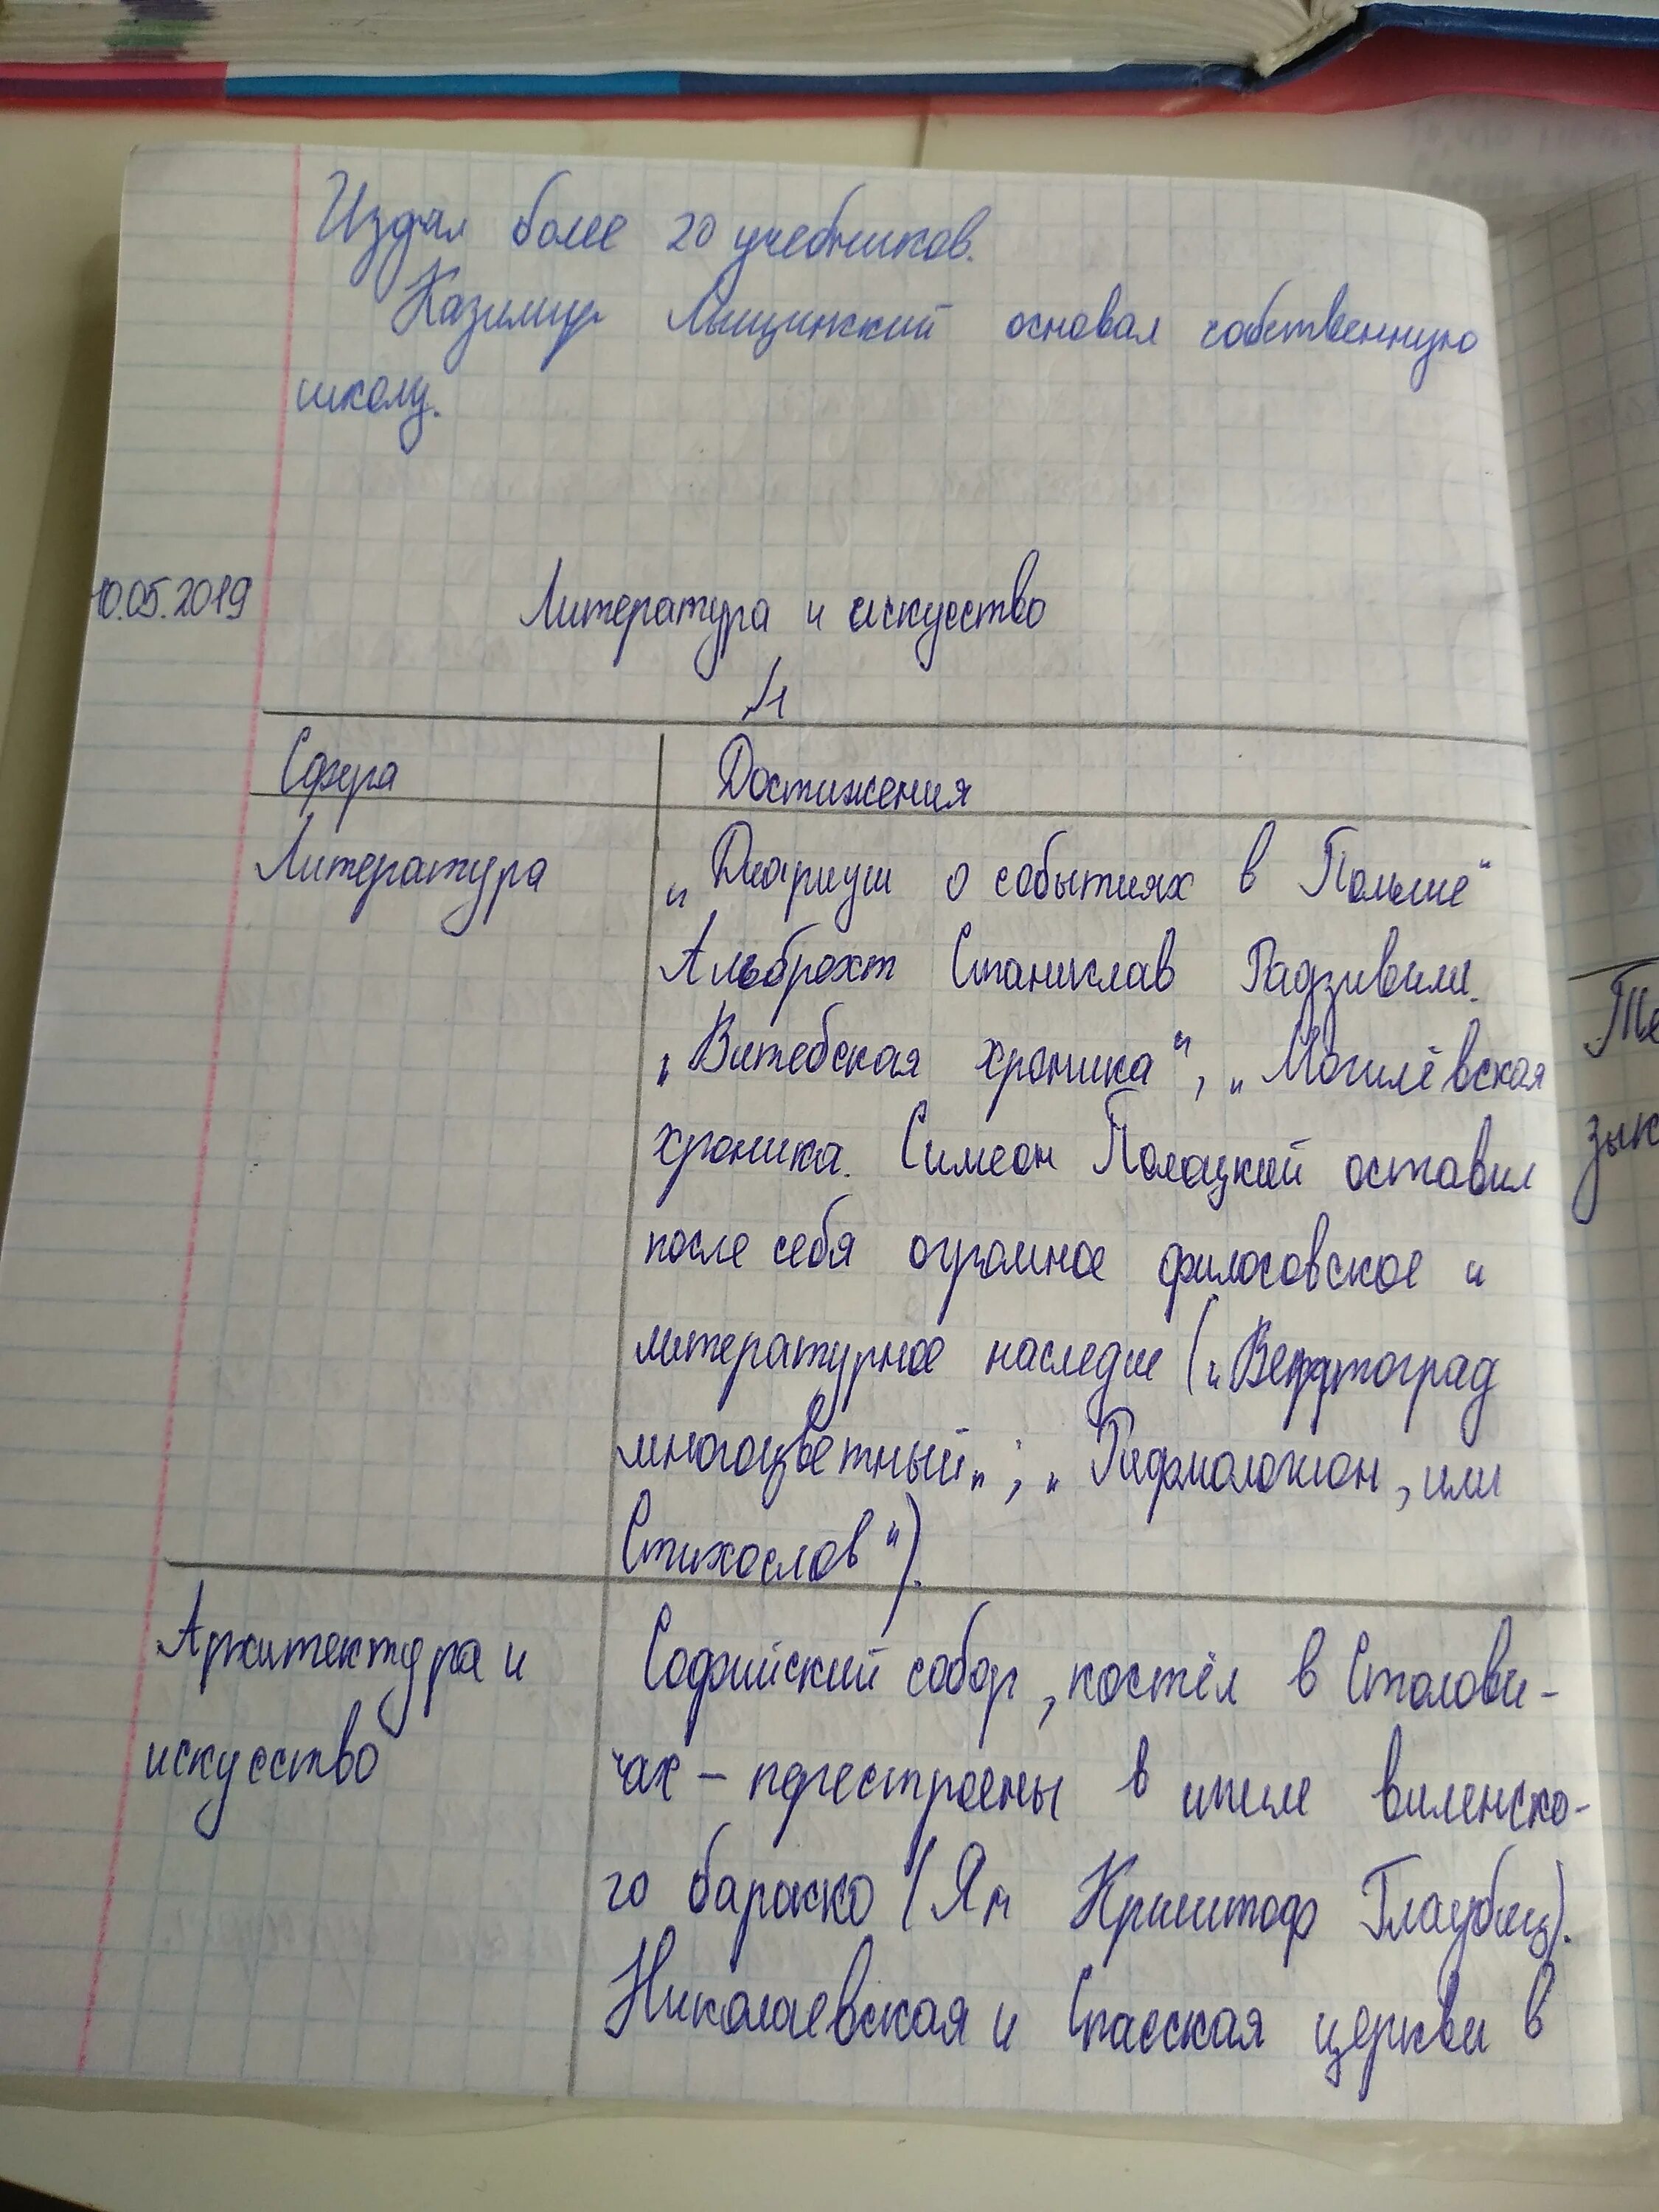 Издал более 20 учебников.
Казимир Лыщинский основал собственную
школу.
10.05.2019
Литература и искусство
Сфера Достижения
Литература „Диариуш о событиях в Польше"
Альбрехт Станислав Радзивилл.
„Витебская хроника", „Могилёвская
хроника. Симеон Полоцкий оставил
после себя огромное филосовское и
литературное наследие („Вертоград
многоцветный„; „Рифмологион, или
Стихослов").
Архитектура и Софийский собор, костёл в Столови-
искусство чах - перестроены в стиле виленско-
го барокко (Ян Криштоф Глаубиц).
Николаевская и Спасская церкви в
зык